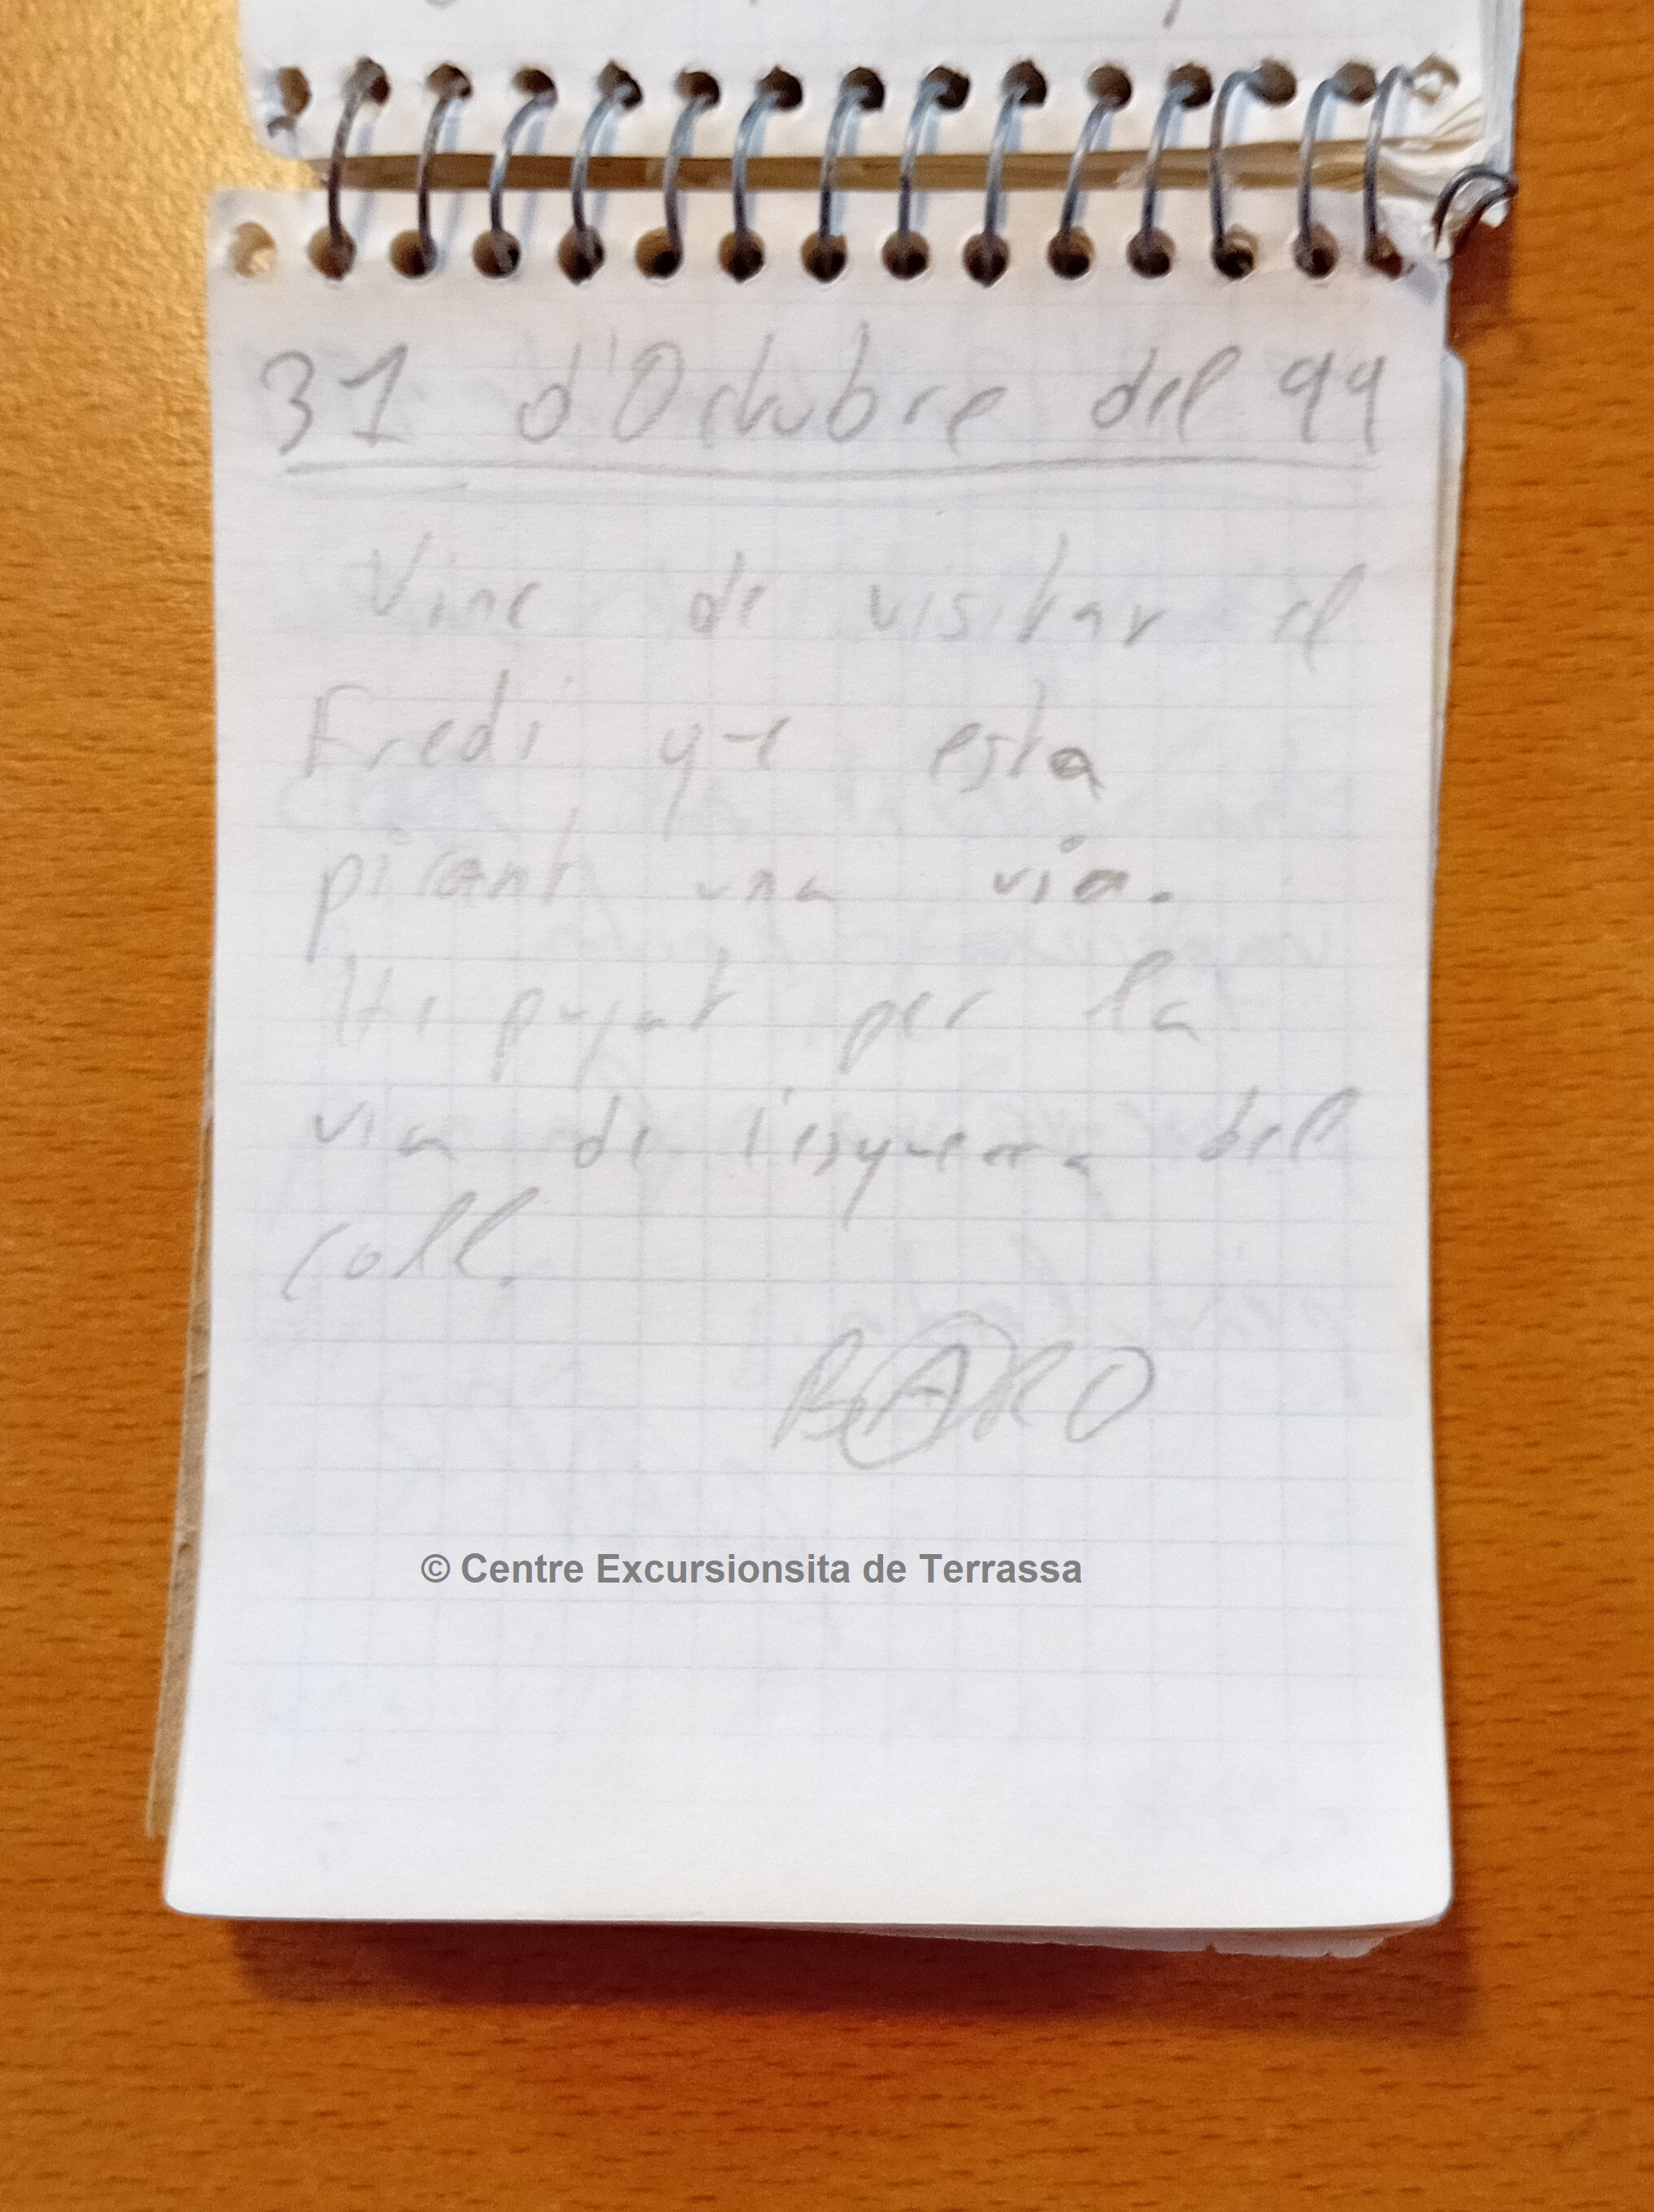 31 d'Octubre del 99
Vinc de visitar el
Fredi que esta
picant una via.
He pujat per la
via de l'esquerra del
coll.
BARO
© Centre Excursionsita de Terrassa